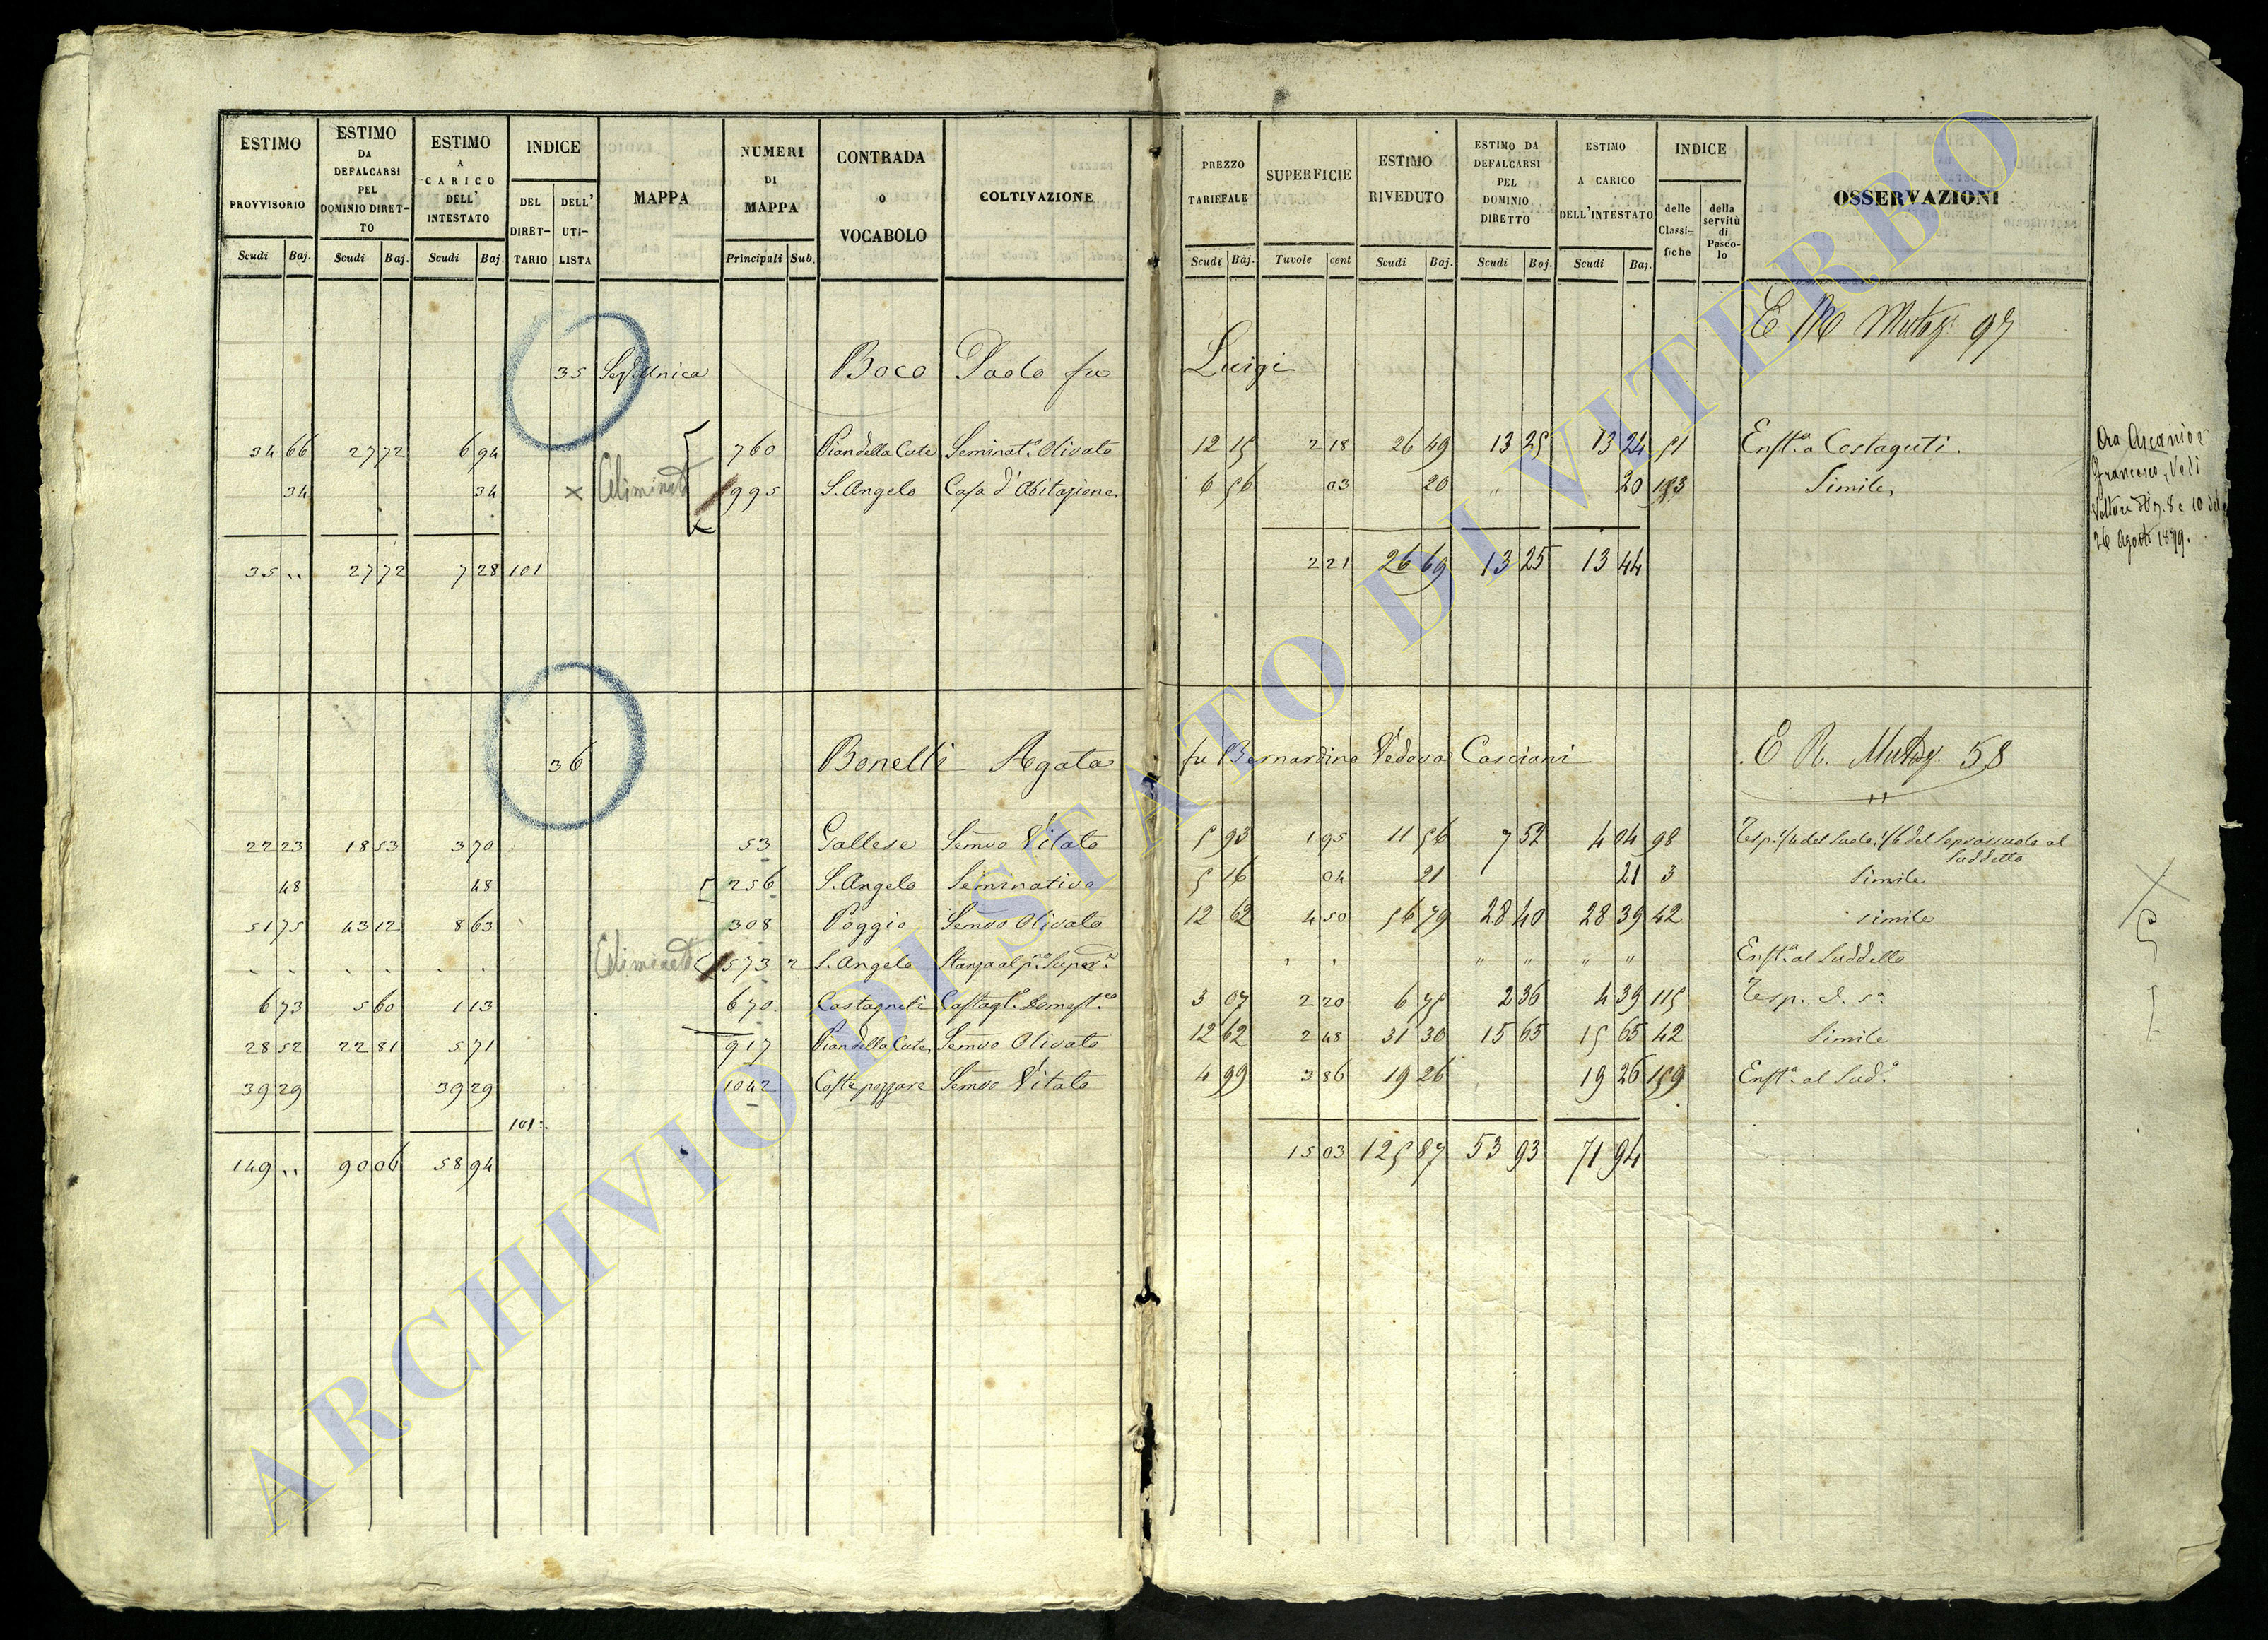 ESTIMO PROVVISORIO Scudi Baj.
ESTIMO DA DEFALCARSI PEL DOMINIO DIRET-TO Scudi Baj.
ESTIMO A CARICO DELL' INTESTATO Scudi Baj.
INDICE DEL DIRET-TARIO DELL' UTI-LISTA
MAPPA
NUMERI DI MAPPA Principali Sub.
CONTRADA O VOCABOLO
COLTIVAZIONE
PREZZO TARIFFALE Scudi Baj.
SUPERFICIE Tavole cent
ESTIMO RIVEDUTO Scudi Baj.
ESTIMO DA DEFALCARSI PEL DOMINIO DIRETTO Scudi Baj.
ESTIMO A CARICO DELL'INTESTATO Scudi Baj.
INDICE delle Classi-fiche della servitù di Pasco-lo
OSSERVAZIONI
35 Sez. Unica Boco Paolo fu Luigi
97
34 66 27 72 6 94 760 Pian della Cute Seminat.o Olivato 12 15 2 18 26 49 13 25 13 24 51 Enft.a a Costaguti.
34 34 × Eliminato 995 S. Angelo Casa d'Abitazione 6 56 03 20 " 20 153 Simile
35 " 27 72 7 28 101 2 21 26 69 13 25 13 44
Francesco, Vedi
26 Agosto 1879.
36 Bonelli Agata fu Bernardino Vedova Casciani E R. Mutaz. 58
22 23 18 53 3 70 53 Gallese Semvo Vitato 5 93 1 95 11 56 7 52 4 04 98 Resp. 1/4 del Suolo, 1/6 del Soprassuolo al Suddetto
48 48 256 S. Angelo Seminativo 5 16 04 21 21 3 Simile
51 75 43 12 8 63 308 Poggio Semvo Olivato 12 62 4 50 56 79 28 40 28 39 42 simile
Eliminato 573 2 S. Angelo Stanza al p.mo Super.e " " " " Enft.a al Suddetto
6 73 5 60 1 13 670 Castagneti Castag.o Domest.co 3 07 2 20 6 75 2 36 4 39 115
28 52 22 81 5 71 917 Pian della Cute Semvo Olivato 12 62 2 48 31 30 15 65 15 65 42 Simile
39 29 39 29 1042 Semvo Vitato 4 99 3 86 19 26 19 26 159 Enft.a al Sud.o
101
149 " 90 06 58 94 15 03 125 87 53 93 71 94
ARCHIVIO DI STATO DI VITERBO